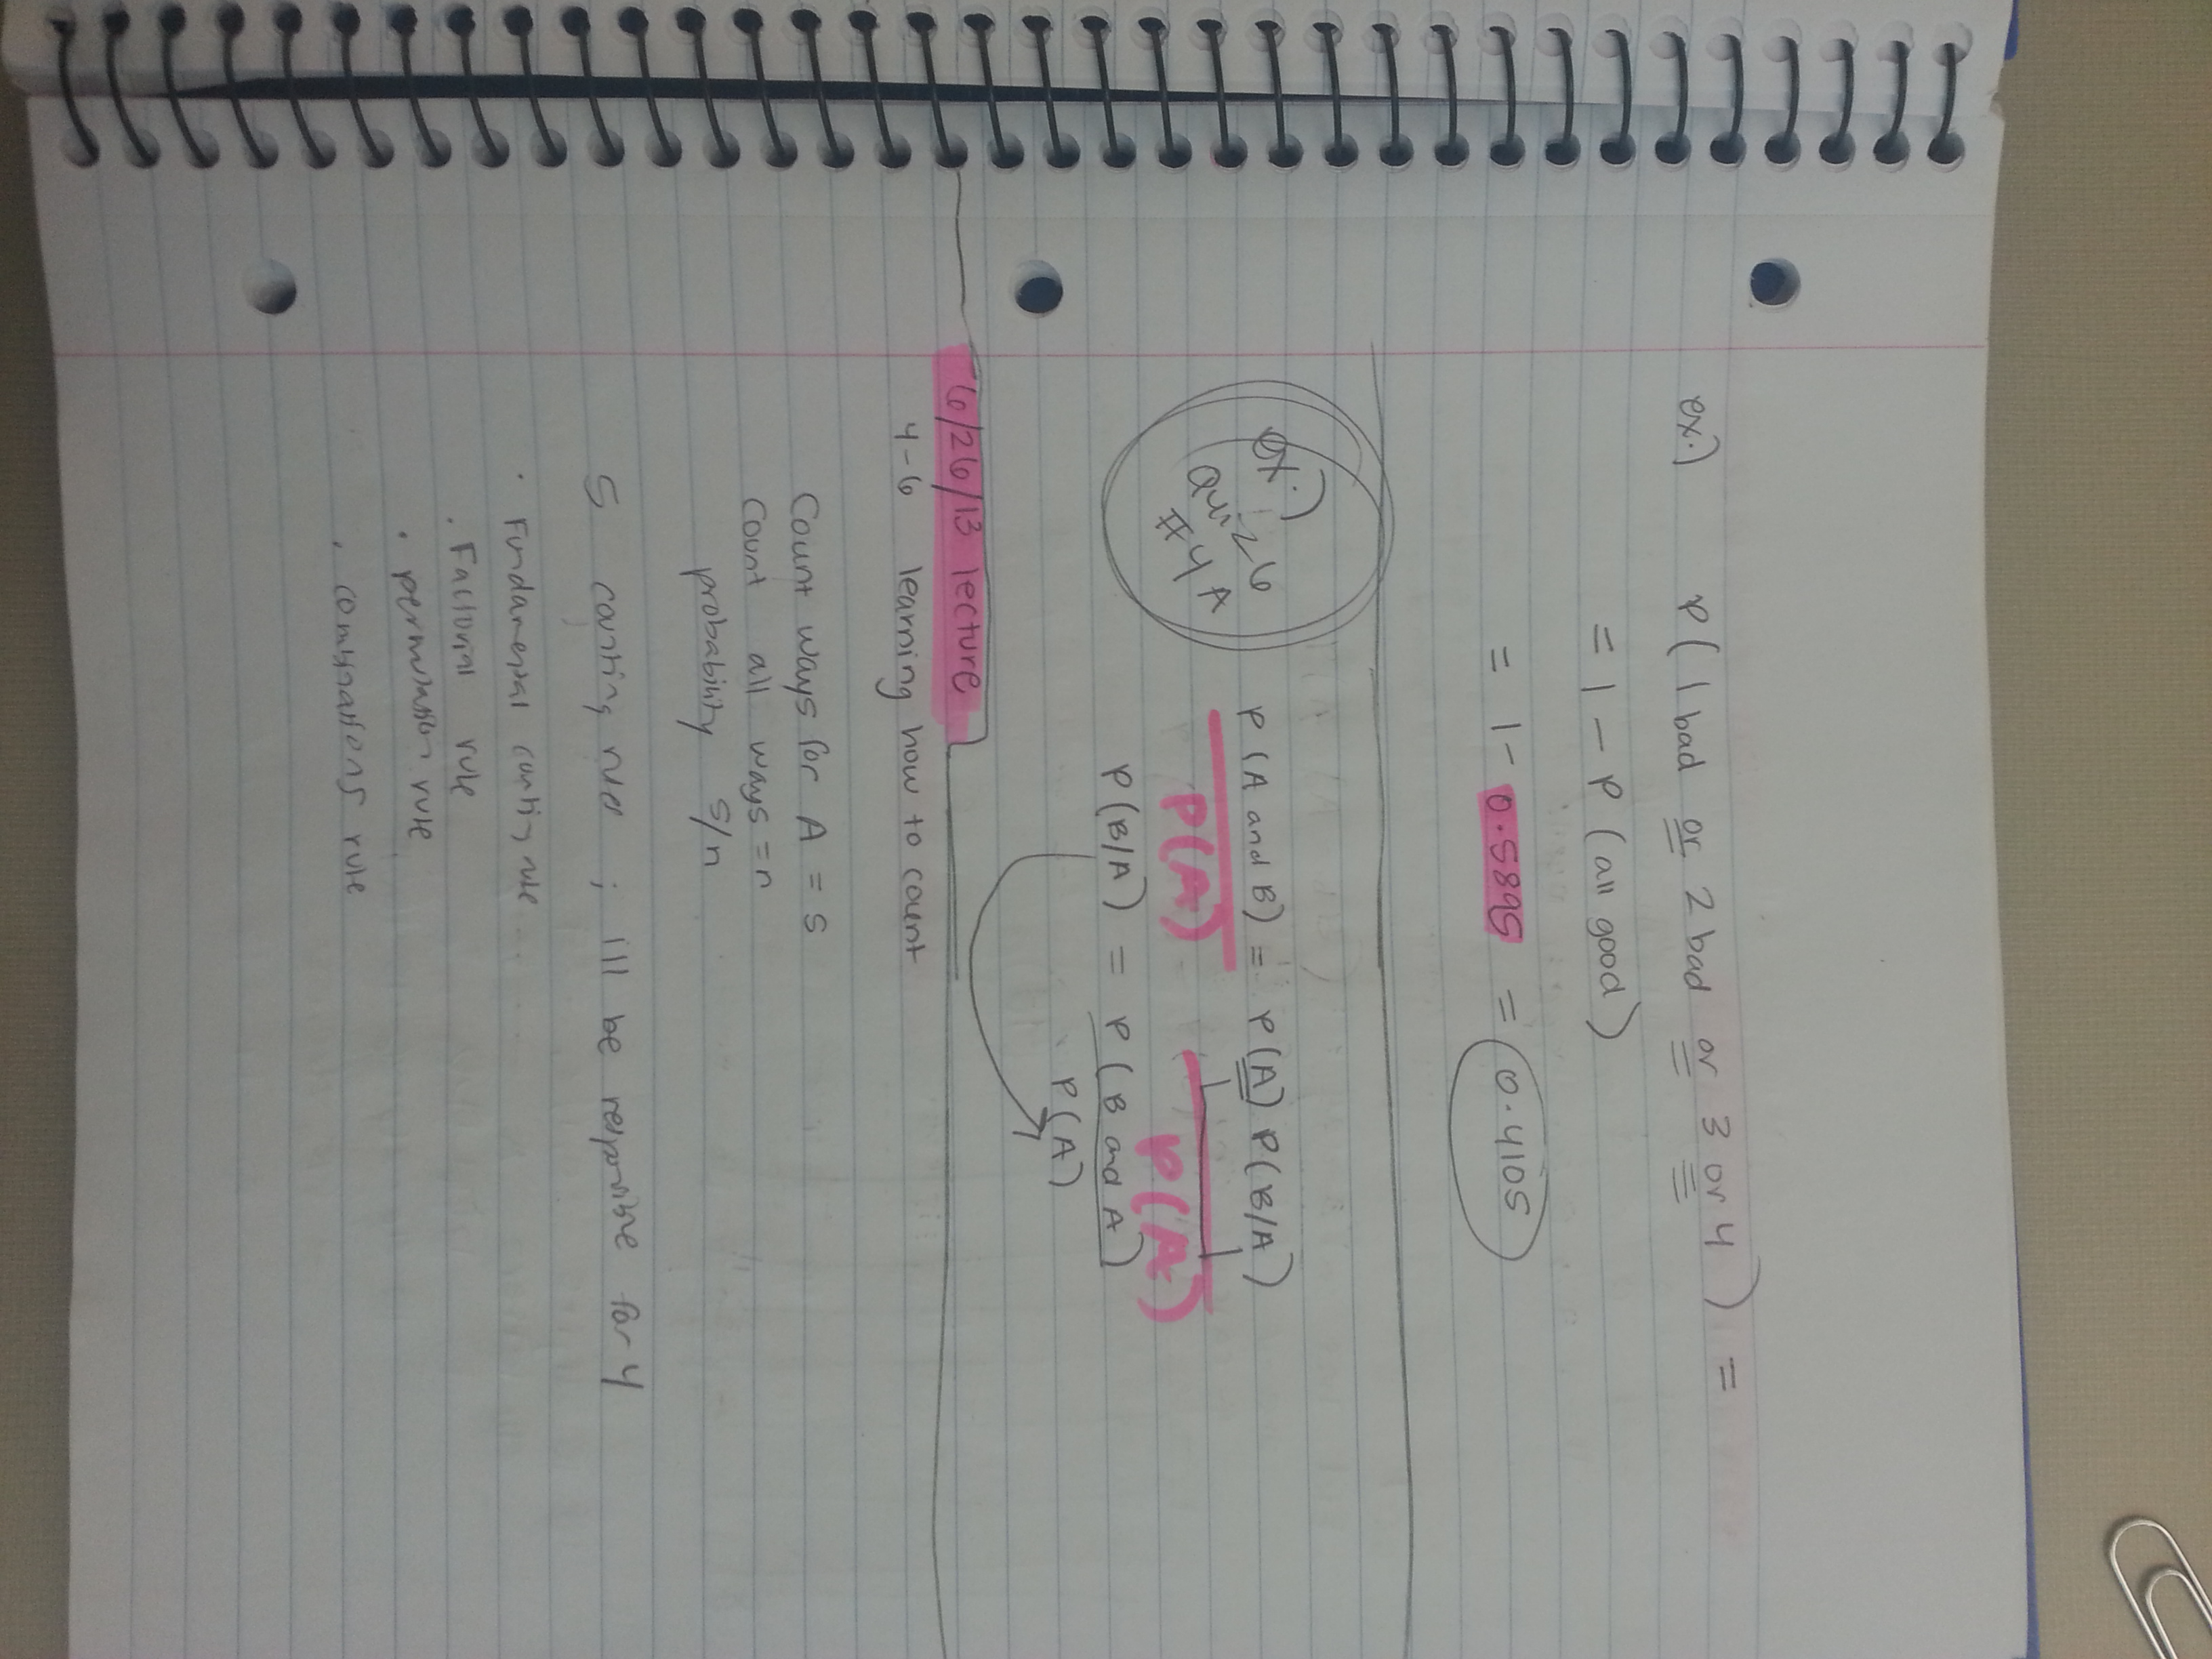 ex.) P(1 bad or 2 bad or 3 or 4) =
= 1 - P(all good)
= 1 - 0.5895 = 0.4105
ex.)
Quiz 6
#4 A
P(A and B) = P(A) P(B/A)
P(A) P(A)
P(B/A) = P(B and A)
P(A)
6/26/13 lecture
4-6 learning how to count
Count ways for A = S
Count all ways = n
probability S/n
5 conting rules ; ill be responsible for 4
· Fundamental counting rule
· Factorial rule
· permutation rule
· combinations rule